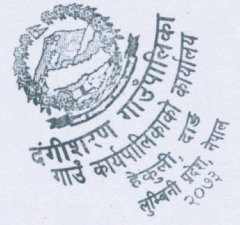 दंगीशरण गाउँपालिका
गाउँ कार्यपालिकाको कार्यालय
हेकुली, दाङ
लुम्बिनी प्रदेश, नेपाल
२०७३